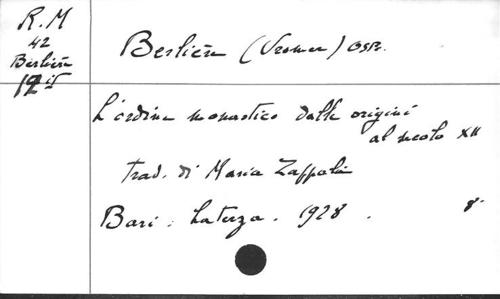 R. M
42
Berlière
12 it
Berlière (Ursmer) OSB.
L'ordine monastico dalle origini
al secolo XII
trad. di Maria Zappalà
Bari. Laterza. 1928. 8°